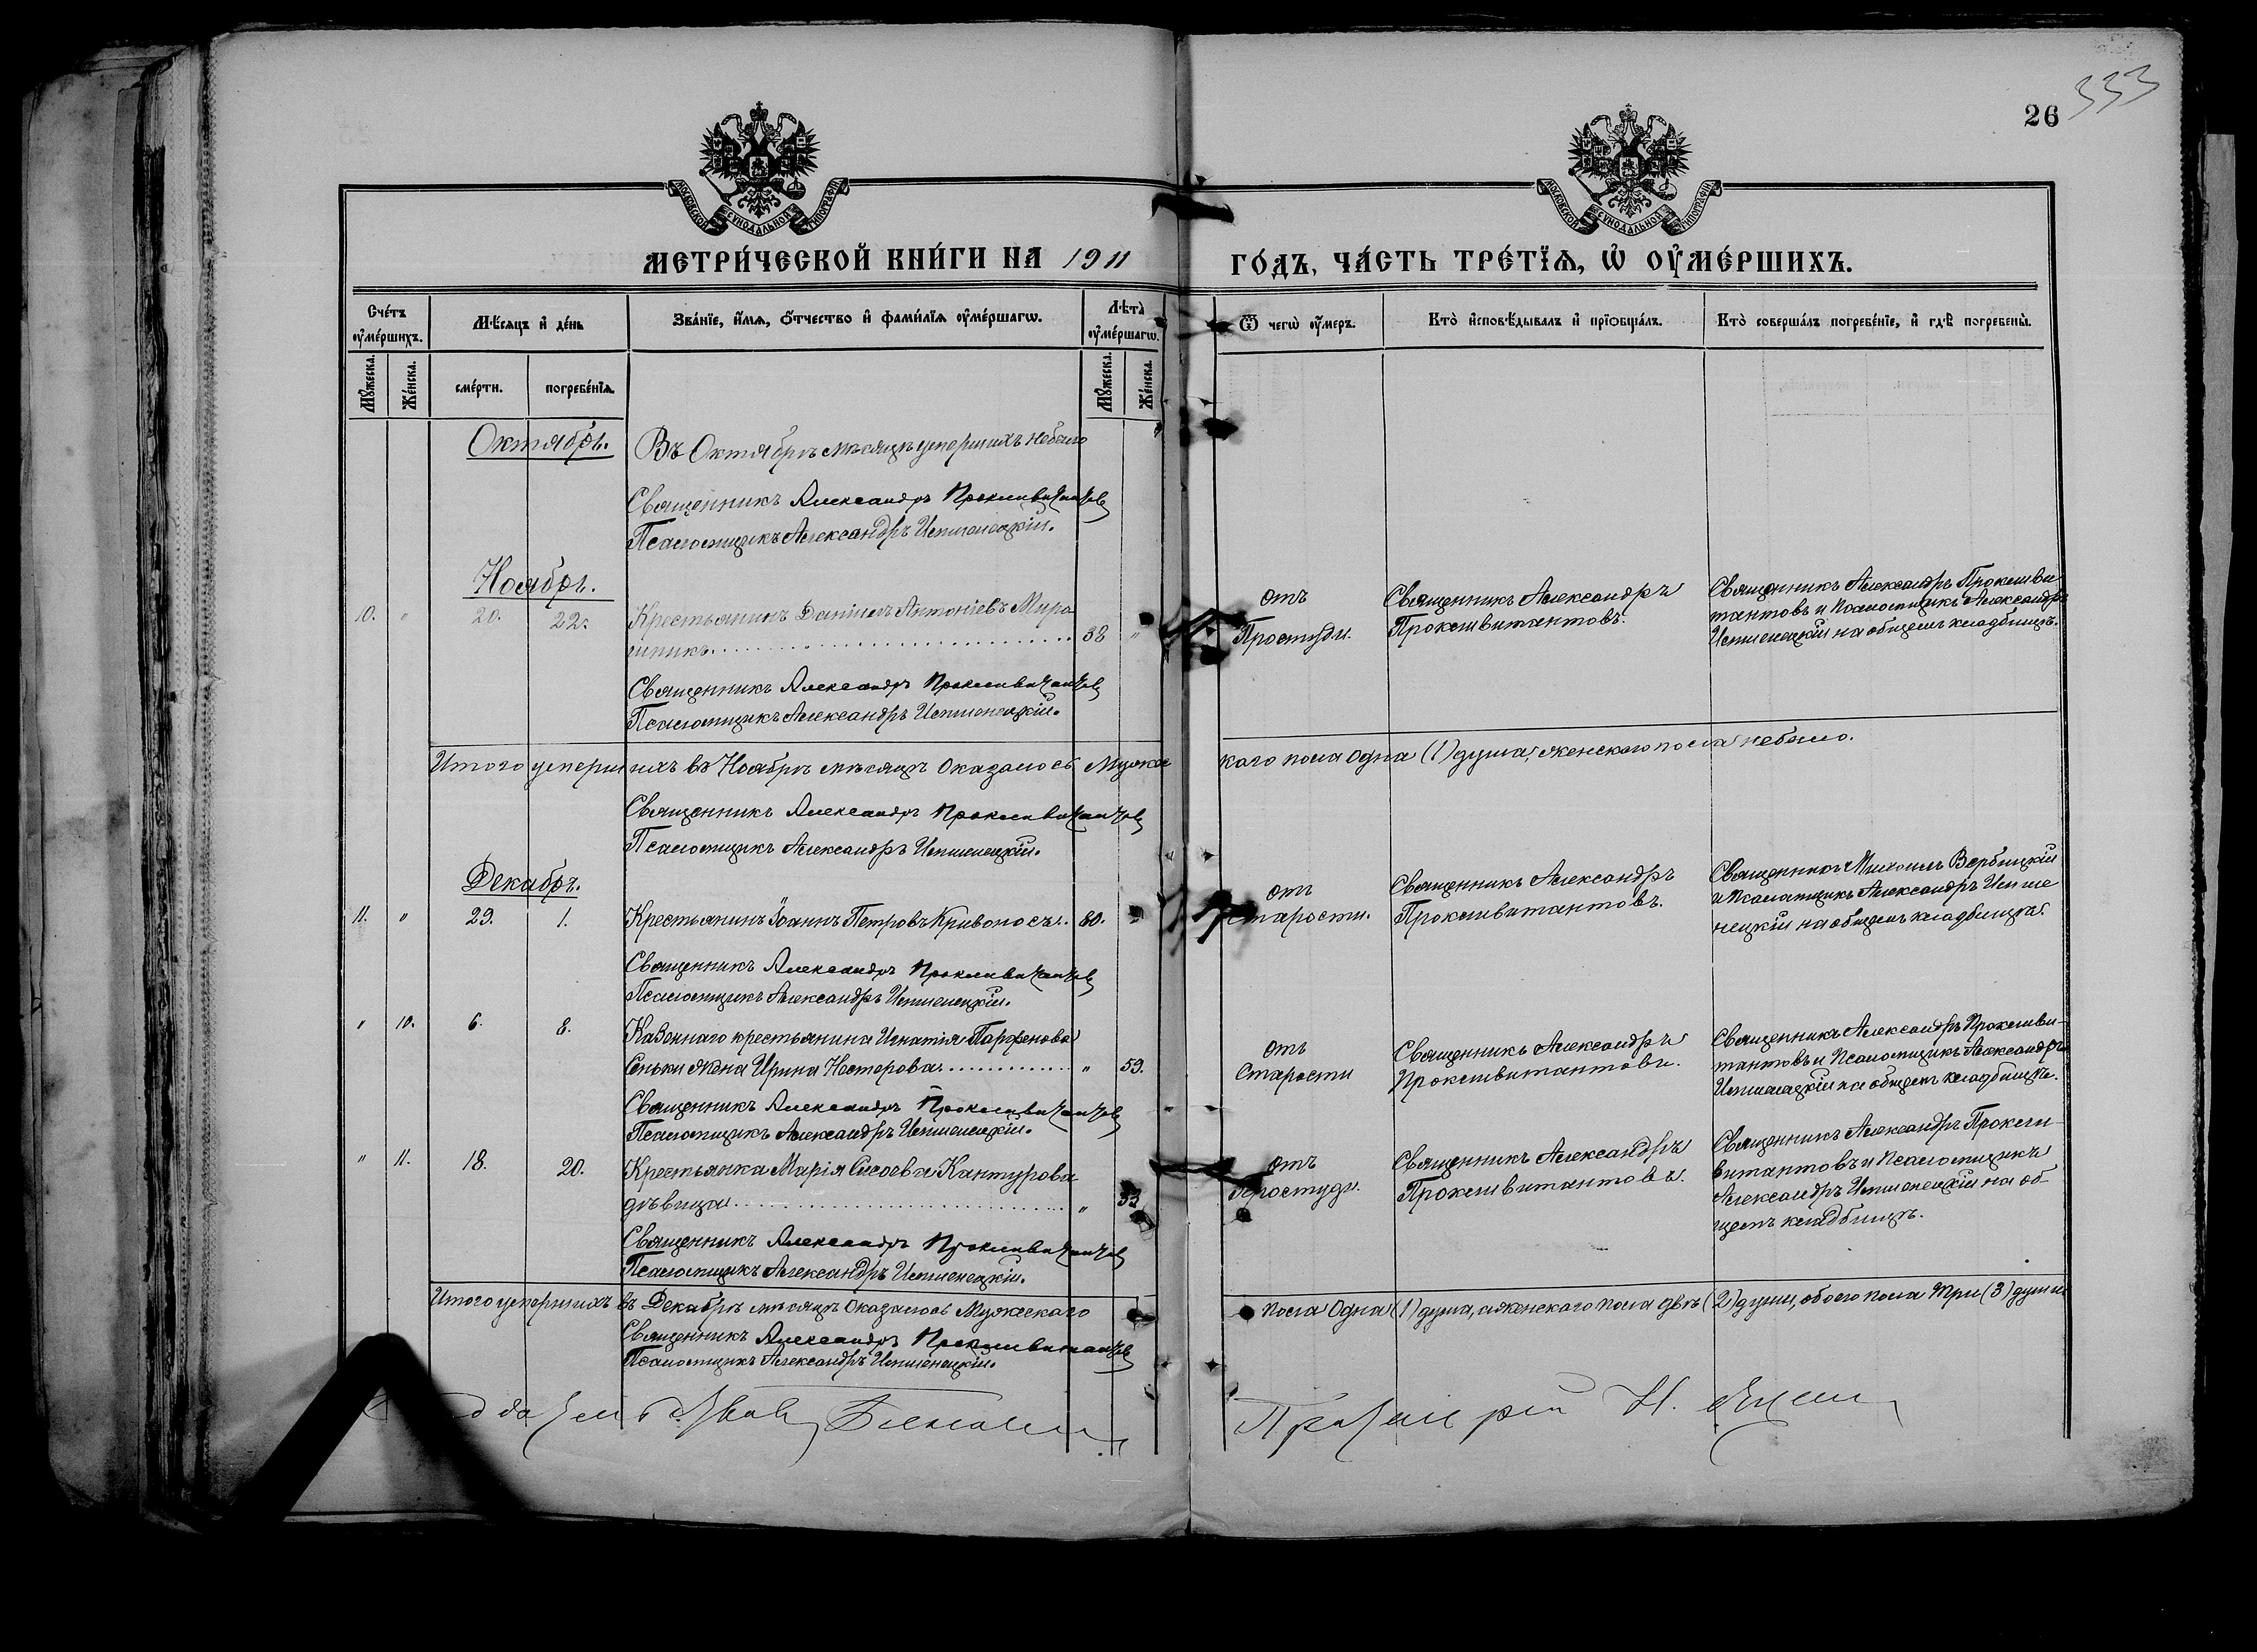 333
26
МОСКОВСКОЙ СѴНОДАЛЬНОЙ ТИПОГРАФІИ
МОСКОВСКОЙ СѴНОДАЛЬНОЙ ТИПОГРАФІИ
МЕТРИ́ЧЕСКОЙ КНИ́ГИ НА 1911 ГО́ДЪ, ЧА́СТЬ ТРЕ́ТЇѦ, Ѡ҆ ОУ҆МЕ́РШИХЪ.
Сче́тъ оу҆ме́ршихъ.
Мѣ́сѧцъ и҆ де́нь
Зва́нїе, и҆́мѧ, ѻ҆́тчество и҆ фами́лїѧ оу҆ме́ршагѡ.
Лѣ̀та оу҆ме́ршагѡ.
Ѿ чегѡ̀ оу҆́меръ.
Кто̀ и҆сповѣ́дывалъ и҆ прїѡбща́лъ.
Кто̀ соверша́лъ погребе́нїе, и҆ гдѣ̀ погребены̀.
Мꙋ́жеска. Же́нска. сме́рти. погребе́нїѧ. Мꙋ́жеска. Же́нска.
Октябрь. Въ Октябрѣ мѣсяцѣ умершихъ небыло
Священникъ Александръ Проклевитантовъ
Псаломщикъ Александръ
Ноябрь.
10. " 20. 22. Крестьянинъ Даніилъ Антоніевъ Миро
шникъ 38 "
отъ
Простуды.
Священникъ Александръ
Проклевитантовъ.
Священникъ Александръ Проклеви
тантовъ и Псаломщикъ Александръ
на общемъ кладбищѣ.
Священникъ Александръ Проклевитантовъ
Псаломщикъ Александръ
Итого умершихъ въ Ноябрѣ мѣсяцѣ оказалось Мужес кого пола одна (1) душа, женского пола небыло.
Священникъ Александръ Проклевитантовъ
Псаломщикъ Александръ
Декабрь.
11. " 29. 1. Крестьянинъ Іоаннъ Петровъ Кривоносъ. 60. "
отъ
старости.
Священникъ Александръ
Проклевитантовъ.
Священникъ Михаилъ Вербицкій
и Псаломщикъ Александръ
на общемъ кладбищѣ.
Священникъ Александръ Проклевитантовъ
Псаломщикъ Александръ
" 10. 6. 8. Казеннаго крестьянина Игнатія Парфенова
Сеньки жена Ирина Нестерова " 59.
отъ
Старости
Священникъ Александръ
Проклевитантовъ.
Священникъ Александръ Проклеви-
тантовъ и Псаломщикъ Александръ
на общемъ кладбищѣ.
Священникъ Александръ Проклевитантовъ
Псаломщикъ Александръ
" 11. 18. 20. Крестьянка Марія Сысоева Кантурова
дѣвица "
отъ
Простуды.
Священникъ Александръ
Проклевитантовъ.
Священникъ Александръ Прокле-
витантовъ и Псаломщикъ
Александръ на об
щемъ кладбищѣ.
Священникъ Александръ Проклевитантовъ
Псаломщикъ Александръ
Итого умершихъ въ Декабрѣ мѣсяцѣ оказалось Мужескаго пола одна (1) душа, а женского пола двѣ (2) души, обоего пола три (3) души
Священникъ Александръ Проклевитантовъ
Псаломщикъ Александръ